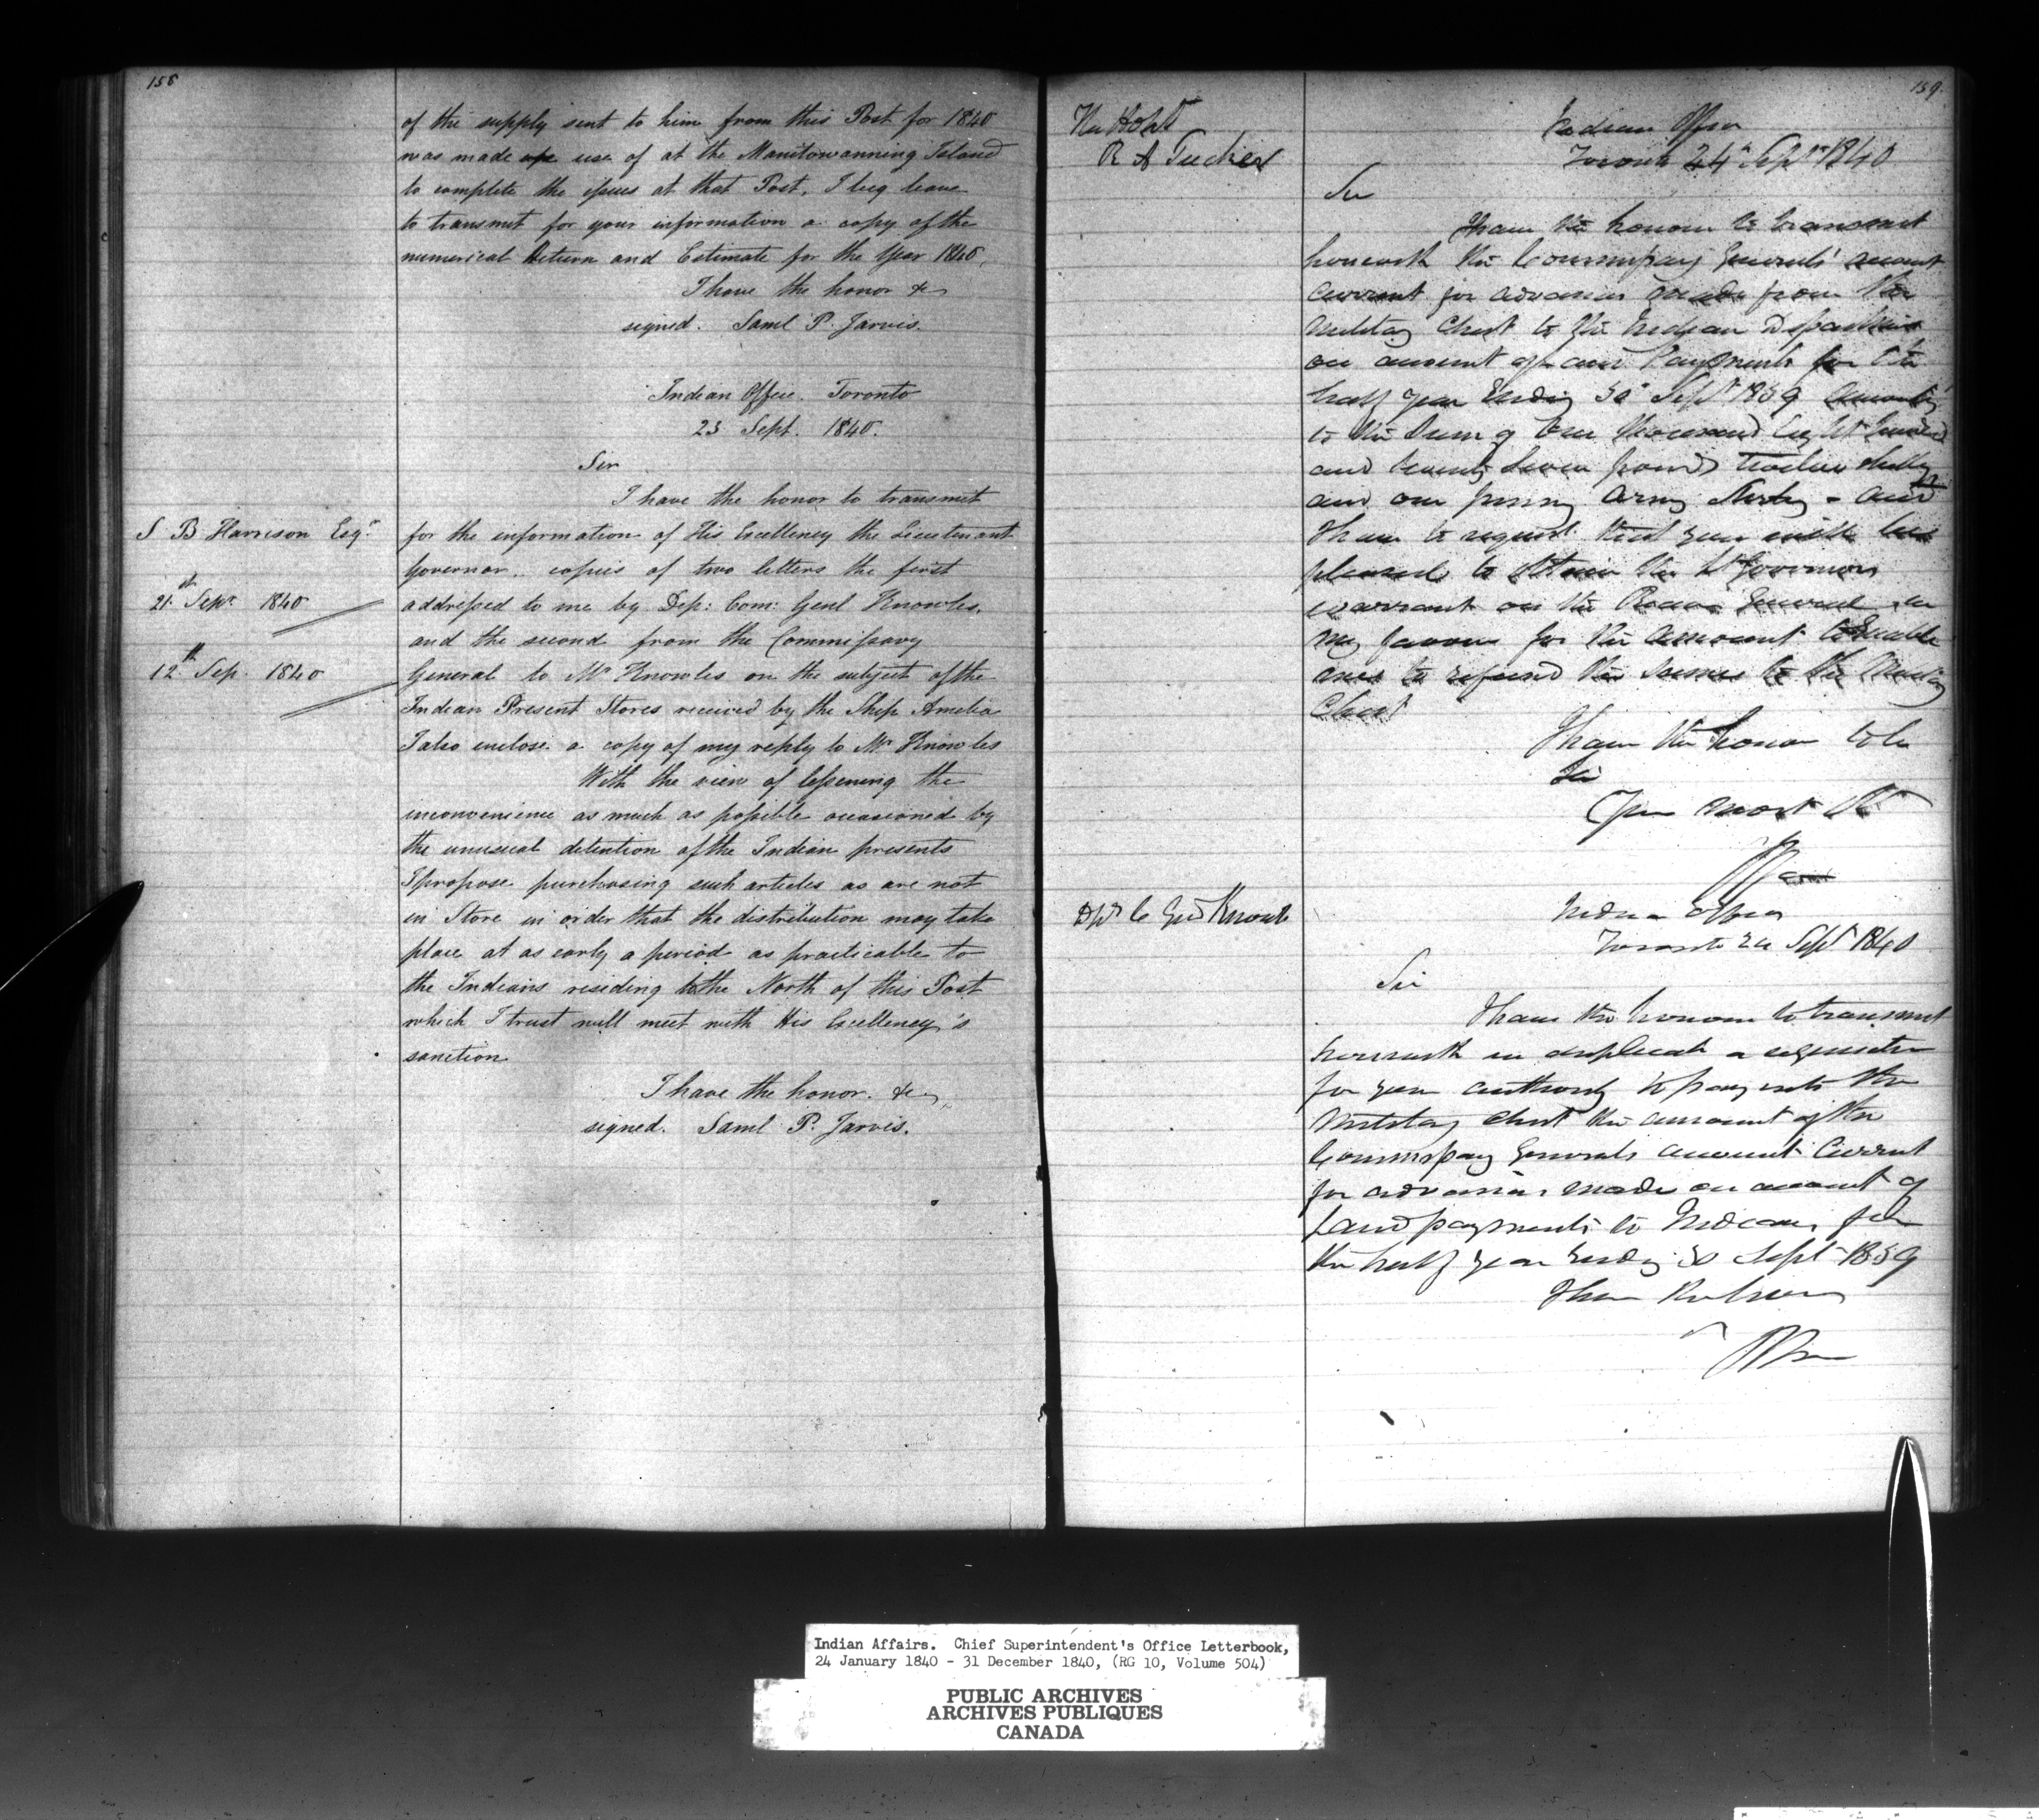 158
of the supply sent to him from this Post for 1840
was made use of at the Manitowanning Island
to complete the issues at that Post. I beg leave
to transmit for your information a copy of the
numerical Return and Estimate for the Year 1840.
I have the honor &c
signed. Saml P. Jarvis.
Indian Office. Toronto
23 Sept. 1840.
Sir
I have the honor to transmit
S B Harrison Esqr
for the information of His Excellency the Lieutenant
Governor, copies of two letters the first
21st Sepr 1840
addressed to me by Dep: Com: Genl Knowles.
and the second from the Commissary
12th Sep. 1840
General to Mr Knowles on the subject of the
Indian Present Stores received by the Ship Amelia
I also enclose a copy of my reply to Mr Knowles
With the view of lessening the
inconvenience as much as possible occasioned by
the unusual detention of the Indian presents
I propose purchasing such articles as are not
in Store in order that the distribution may take
place at as early a period as practicable to
the Indians residing to the North of this Post
which I trust will meet with His Excellency's
sanction
I have the honor. &c
signed. Saml P. Jarvis.
159
The Honl
R A Tucker
Indian Office
Toronto 24th Septr 1840
Sir
I have the honour to transmit
herewith the Commissary Generals' account
current for advances made from the
Military Chest to the Indian Department
on account of Land Payments for the
half year Ending 30th Sept 1839 amounting
to the Sum of One thousand Eight hundred
and twenty seven pounds twelve shillings
and one penny Army Sterling - and
I have to request that you will be
pleased to obtain the Lt Governors
warrant on the Receiver General in
my favour for the amount to enable
me to refund the same to the Military
Chest
I have the honor to be
Sir
Your most Obt
Dpy C Genl Knowles
Indian Office
Toronto 24 Sept 1840
Sir
I have the honour to transmit
herewith in duplicate a requisition
for your authority to pay into the
Military Chest the amount of the
Commissary Generals account Current
for advances made on account of
Land payments to Indians for
the half year Ending 30 Sept 1839
I have
Indian Affairs. Chief Superintendent's Office Letterbook,
24 January 1840 - 31 December 1840, (RG 10, Volume 504)
PUBLIC ARCHIVES
ARCHIVES PUBLIQUES
CANADA